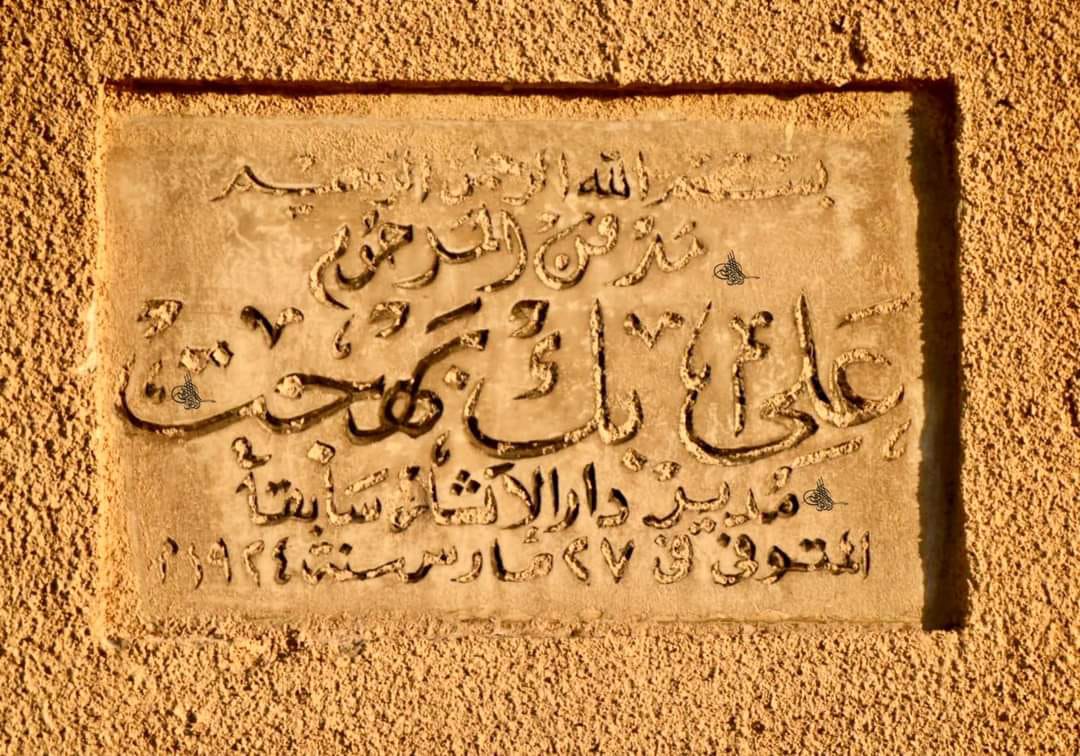 بسم الله الرحمن الرحيم
مدفن المرحوم
علي بك بهجت
مدير دار الآثار سابقاً
المتوفى في ٢٧ مارس سنة ١٩٢٤م